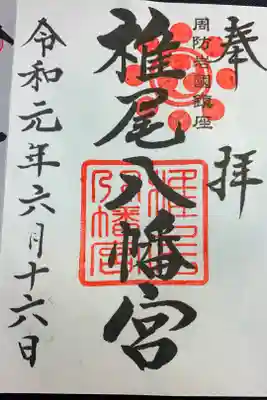 奉拝
周防岩国鎮座
椎尾八幡宮
令和元年六月十六日